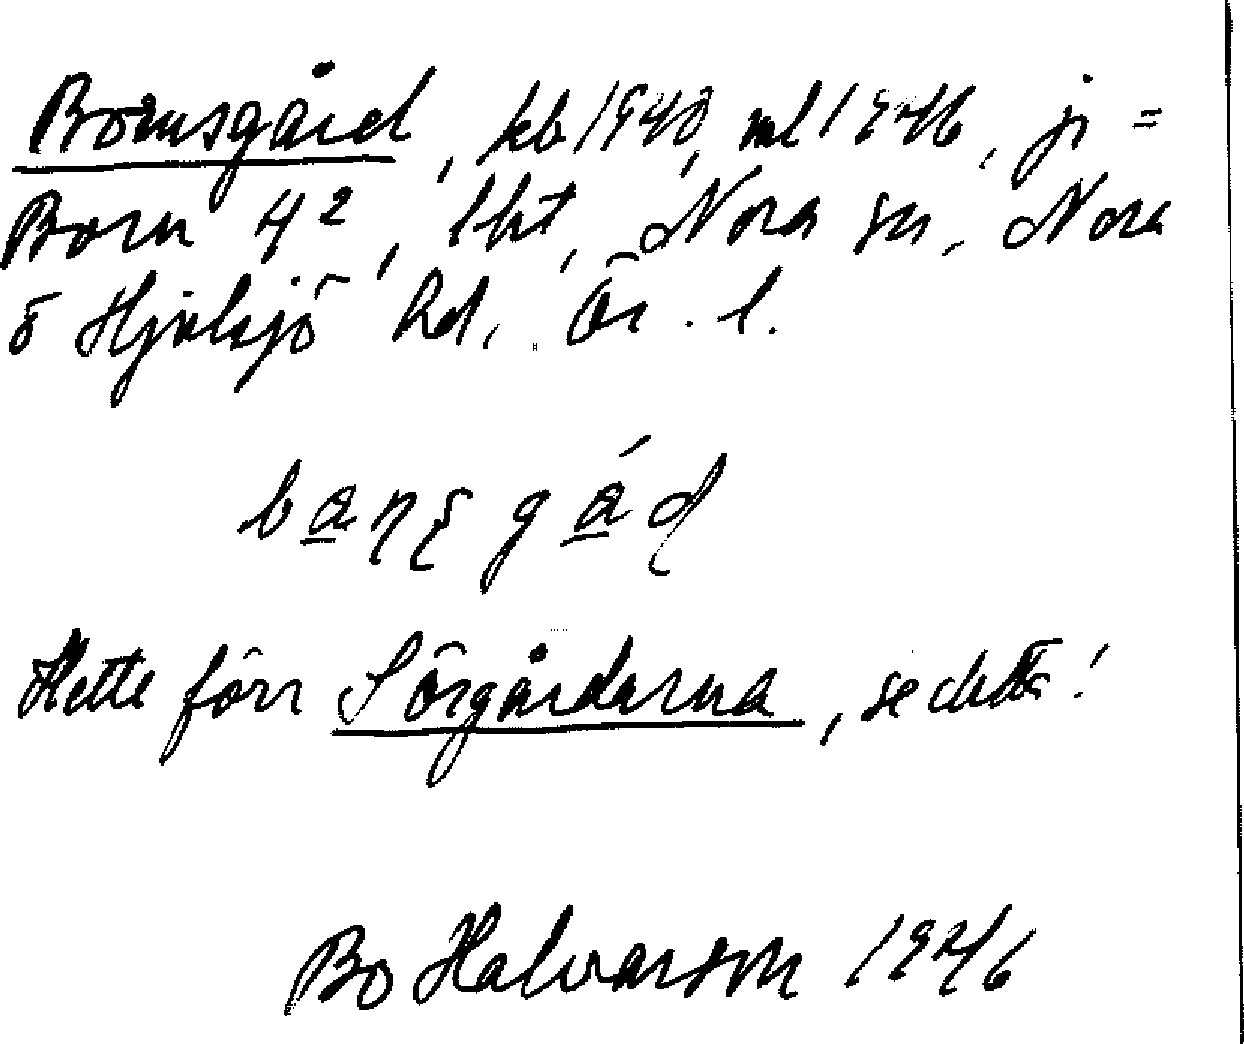 Bornsgård, kb 1940, ml 1946, ji =
Born 4², lht, Nora sn, Nora
o Hjulsjö hd, Ör. l.
baɳʂgáɖ
Hette förr Sörgårdarna, se detta!
Bo Halvarson 1946